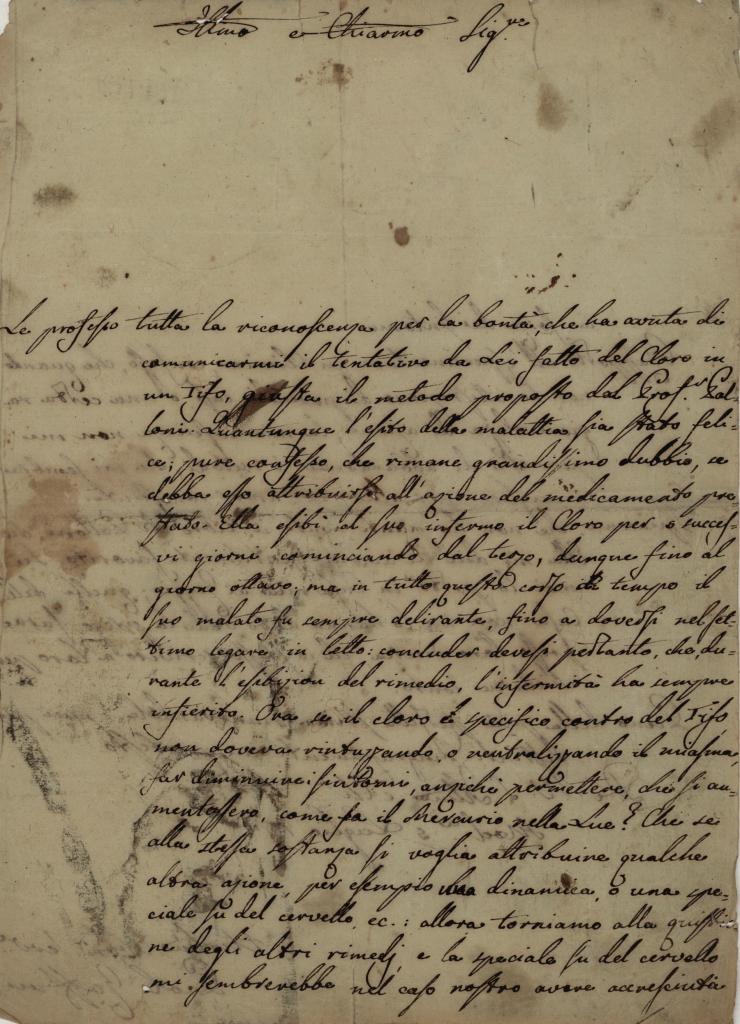 Illmo e Chiarmo Sigre
Le professo tutta la riconoscenza per la bontà, che ha avuta di
comunicarmi il tentativo da Lei fatto del Cloro in
un Tifo, giusta il metodo proposto dal Profr.
Quantunque l'esito della malattia sia stato feli-
ce; pure confesso, che rimane grandissimo dubbio, se
debba esso attribuirsi all'azione del medicamento pre
stato. Ella esibì al suo infermo il Cloro per 6 succes-
vi giorni cominciando dal terzo, dunque fino al
giorno ottavo; ma in tutto questo corso di tempo il
suo malato fu sempre delirante, fino a doversi nel set-
timo legare in letto: concluder devesi pertanto, che, du-
rante l'esibizion del rimedio, l'infermità ha sempre
infierito. Ora se il cloro è specifico contro del Tifo
non doveva rintuzzando, o neutralizzando il miasma,
far diminuire i sintomi, anzichè permettere, che si au-
mentassero, come fa il Mercurio nella Lue? Che se
alla stessa sostanza si voglia attribuire qualche
altra azione, per esempio una dinamica, o una spe-
ciale su del cervello, ec.: allora torniamo alla quistio-
ne degli altri rimedj, e la speciale su del cervello
mi sembrerebbe nel caso nostro avere accresciuta